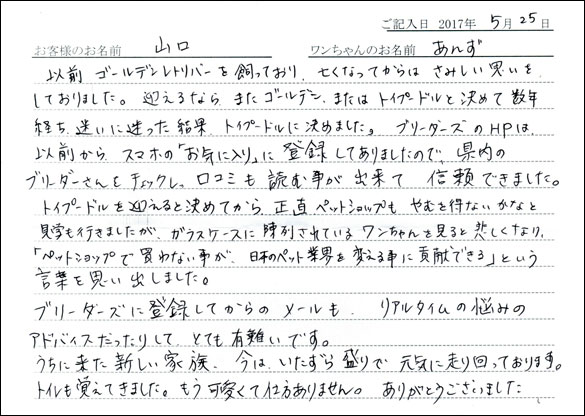 ご記入日 2017年 5月25日
お客様のお名前 山口 ワンちゃんのお名前 あんず
以前 ゴールデンレトリバーを飼っており、亡くなってからは さみしい思いを
しておりました。迎えるなら、またゴールデン、またはトイプードルと決めて数年
経ち、迷いに迷った結果、トイプードルに決めました。ブリーダーズのHPは、
以前から、スマホの「お気に入り」に登録してありましたので、県内の
ブリーダーさんをチェックし、口コミも読む事が出来て 信頼できました。
トイプードルを迎えると決めてから、正直ペットショップもやむを得ないかなと
見学も行きましたが、ガラスケースに陳列されているワンちゃんを見ると悲しくなり、
「ペットショップで買わない事が、日本のペット業界を変える事に貢献できる」という
言葉を思い出しました。
ブリーダーズに登録してからのメールも、リアルタイムの悩みの
アドバイスだったりして、とても有難いです。
うちに来た新しい家族、今は、いたずら盛りで元気に走り回っております。
トイレも覚えてきました。もう可愛くて仕方ありません。ありがとうございました